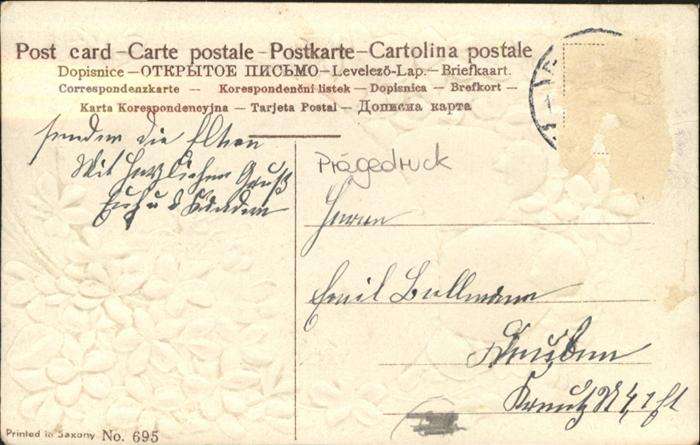 Post card – Carte postale – Postkarte – Cartolina postale
Dopisnice – ОТКРЫТОЕ ПИСЬМО – Levelező-Lap. – Briefkaart.
Correspondenzkarte – Korespondenční listek – Dopisnica – Brefkort –
Karta Korespondencyjna – Tarjeta Postal – Дописна карта
senden die Eltern
Mit herzlichem Gruß
Euch u d Kindern
Prägedruck
Herrn
Emil Bullmann
Kreutz
Printed in Saxony No. 695